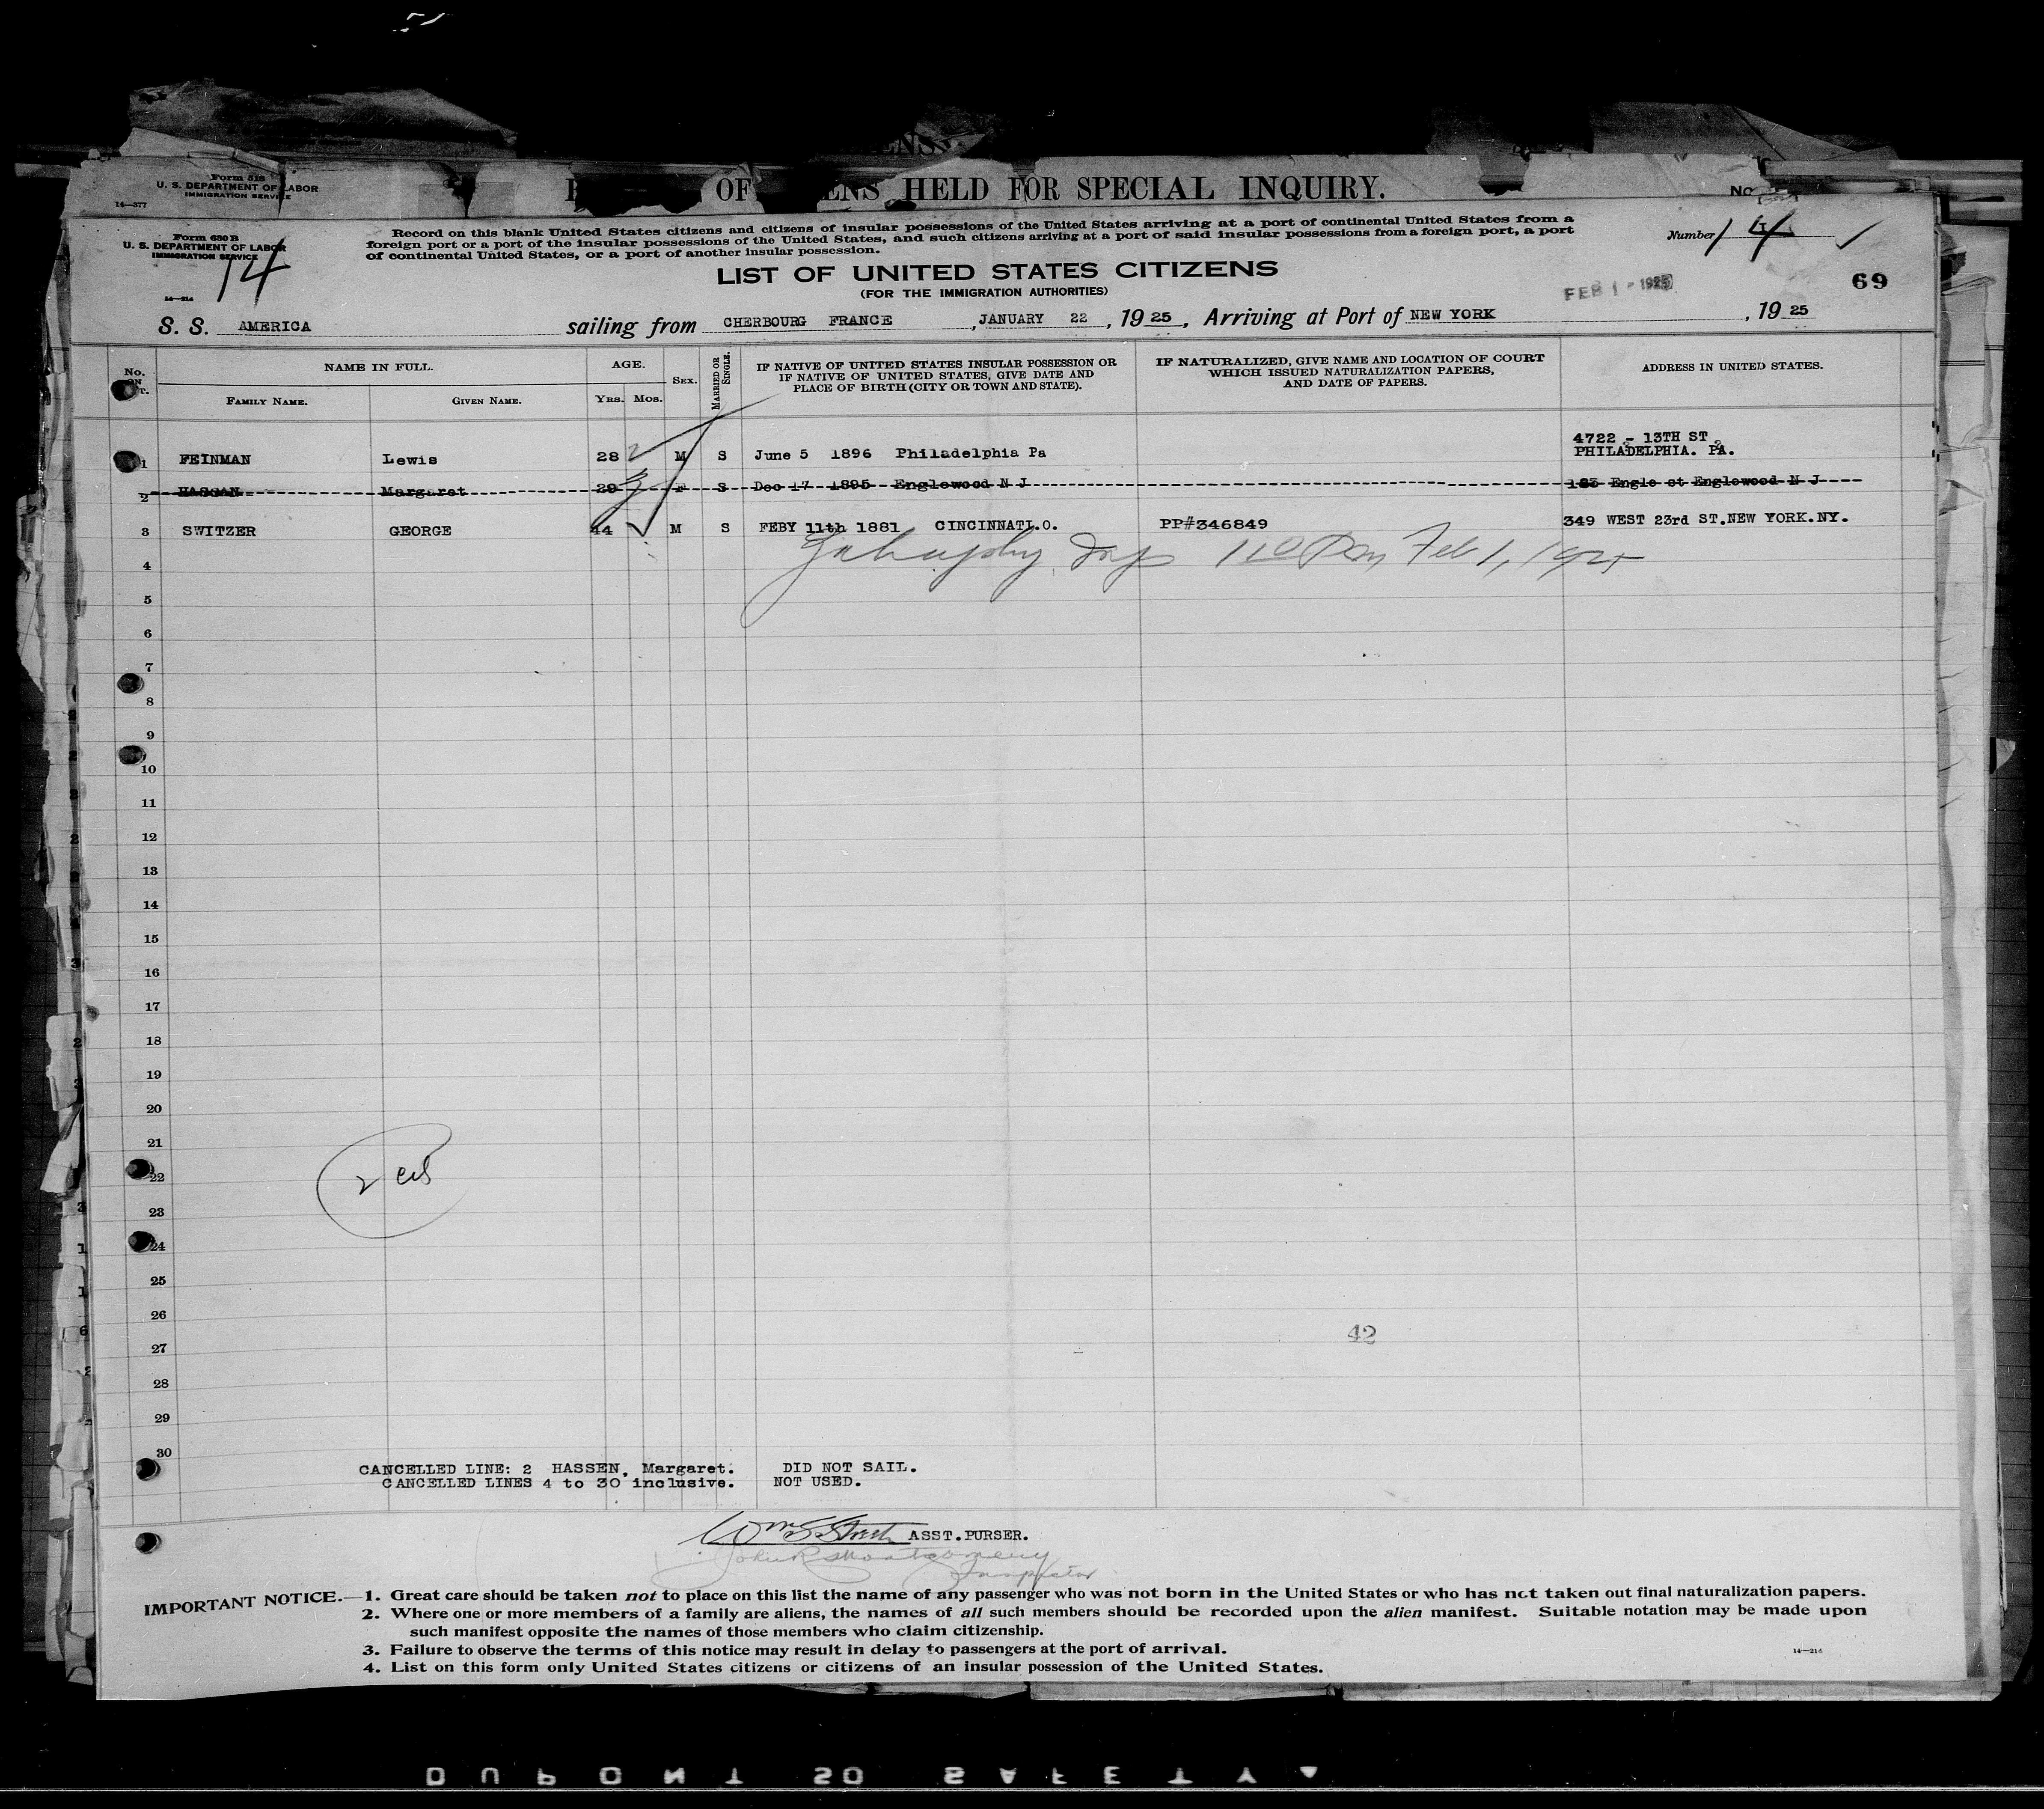 Form 518
U. S. DEPARTMENT OF LABOR
IMMIGRATION SERVICE
14—377
OF ENS HELD FOR SPECIAL INQUIRY.
No.
Form 630 B
U. S. DEPARTMENT OF LABOR
IMMIGRATION SERVICE
14
14—214
Record on this blank United States citizens and citizens of insular possessions of the United States arriving at a port of continental United States from a
foreign port or a port of the insular possessions of the United States, and such citizens arriving at a port of said insular possessions from a foreign port, a port
of continental United States, or a port of another insular possession.
Number 14
LIST OF UNITED STATES CITIZENS
(FOR THE IMMIGRATION AUTHORITIES)
FEB 1 - 1925
69
S. S. AMERICA sailing from CHERBOURG FRANCE, JANUARY 22, 1925, Arriving at Port of NEW YORK, 1925
No. ON LIST.
NAME IN FULL.
FAMILY NAME. GIVEN NAME.
AGE.
YRS. MOS.
SEX.
MARRIED OR SINGLE.
IF NATIVE OF UNITED STATES INSULAR POSSESSION OR
IF NATIVE OF UNITED STATES, GIVE DATE AND
PLACE OF BIRTH (CITY OR TOWN AND STATE).
IF NATURALIZED, GIVE NAME AND LOCATION OF COURT
WHICH ISSUED NATURALIZATION PAPERS,
AND DATE OF PAPERS.
ADDRESS IN UNITED STATES.
1 FEINMAN Lewis 28 M S June 5 1896 Philadelphia Pa 4722 - 13TH ST
PHILADELPHIA. PA.
2 HASSAN Margaret 29 F S Dec 17 1895 Englewood N J 183 Engle st Englewood N J
3 SWITZER GEORGE 44 M S FEBY 11th 1881 CINCINNATI.O. PP#346849 349 WEST 23rd ST.NEW YORK.NY.
4 Feb 1, 1925
5
6
7
8
9
10
11
12
13
14
15
16
17
18
19
20
21
22
2 cit
23
24
25
26
42
27
28
29
30
CANCELLED LINE: 2 HASSEN, Margaret. DID NOT SAIL.
CANCELLED LINES 4 to 30 inclusive. NOT USED.
ASST.PURSER.
John R Montgomery
Inspector
IMPORTANT NOTICE.—1. Great care should be taken not to place on this list the name of any passenger who was not born in the United States or who has not taken out final naturalization papers.
2. Where one or more members of a family are aliens, the names of all such members should be recorded upon the alien manifest. Suitable notation may be made upon
such manifest opposite the names of those members who claim citizenship.
3. Failure to observe the terms of this notice may result in delay to passengers at the port of arrival.
14—214
4. List on this form only United States citizens or citizens of an insular possession of the United States.
DUPONT SO SAFETY